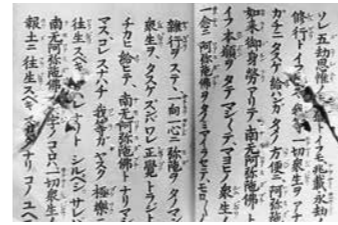 ソレ五劫思惟ノ本願トイフモ、兆載永劫ノ
修行トイフモ、我等一切衆生ヲアナ
ガチニタスケ給ハンガタメノ方便ニ、阿弥陀
如来御身勞アリテ、南无阿弥陀佛ト
イフ本願ヲタテマシマシテ、マヨヒノ衆生ノ
一念ニ阿弥陀佛ヲタノミマイラセテ、モロ〱ノ
雜行ヲステヽ、一向一心ニ弥陀ヲタノマン
衆生ヲ、タスケズンバワレ正覺トラジト
チカヒ給ヒテ、南无阿弥陀佛トナリマシ
マス、コレスナハチ我等ガヤスク極樂ニ
往生スベキ レナリトシルベシ、サレバ
南无阿弥陀佛 コヽロハ、一切衆生ノ
報土ニ往生スベキスガタナリ、コノユヘ